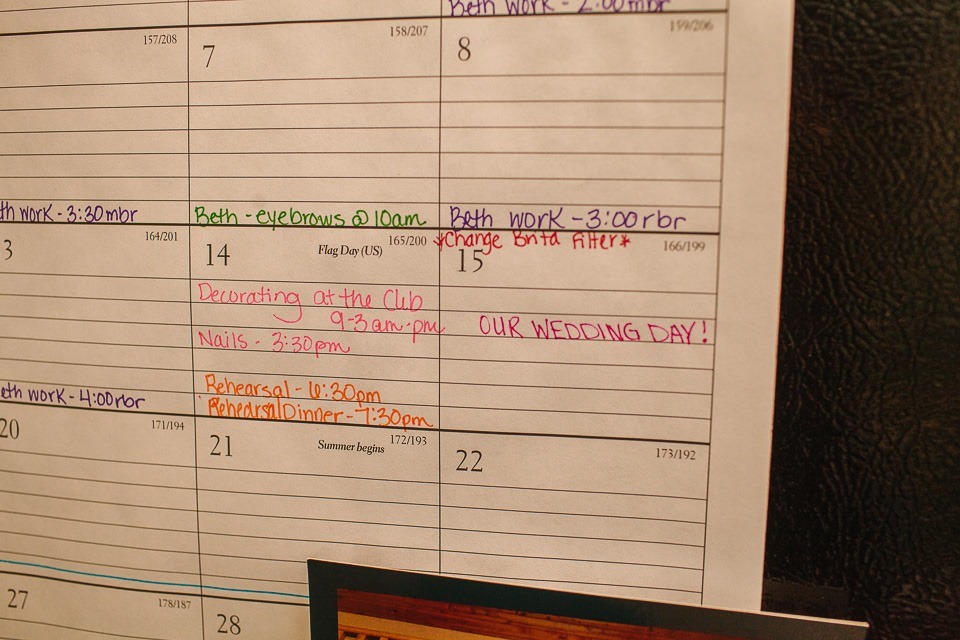 Beth work - 2:00mbr
157/208
7 158/207
8 159/206
th work - 3:30mbr
Beth - eyebrows @ 10am
Beth work - 3:00rbr
3 164/201
14 Flag Day (US) 165/200
*Change Brita Filter*
15 166/199
Decorating at the Club
9-3am-pm
Nails - 3:30pm
OUR WEDDING DAY!
eth work - 4:00rbr
Rehearsal - 6:30pm
Rehearsal Dinner - 7:30pm
20 171/194
21 Summer begins 172/193
22 173/192
27 178/187
28